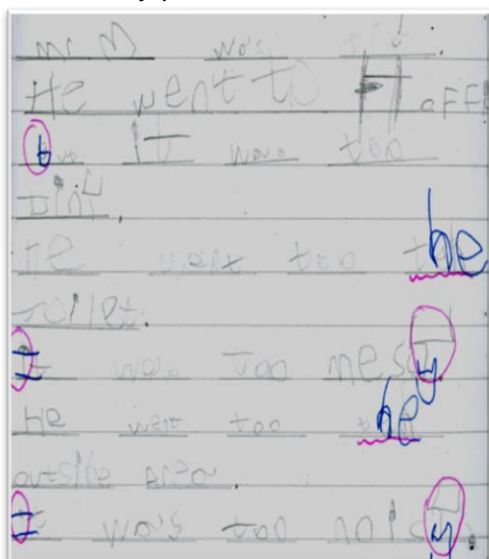 Mr M was
He went to offi
but It was too
pink.
He went too the
toilet.
It was too messy
He went too the
outside area.
It was too noisy.